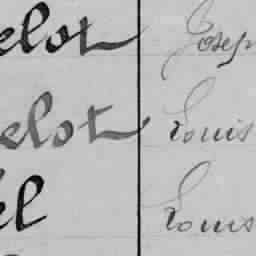 elot Josep
elot Louis
el Louis